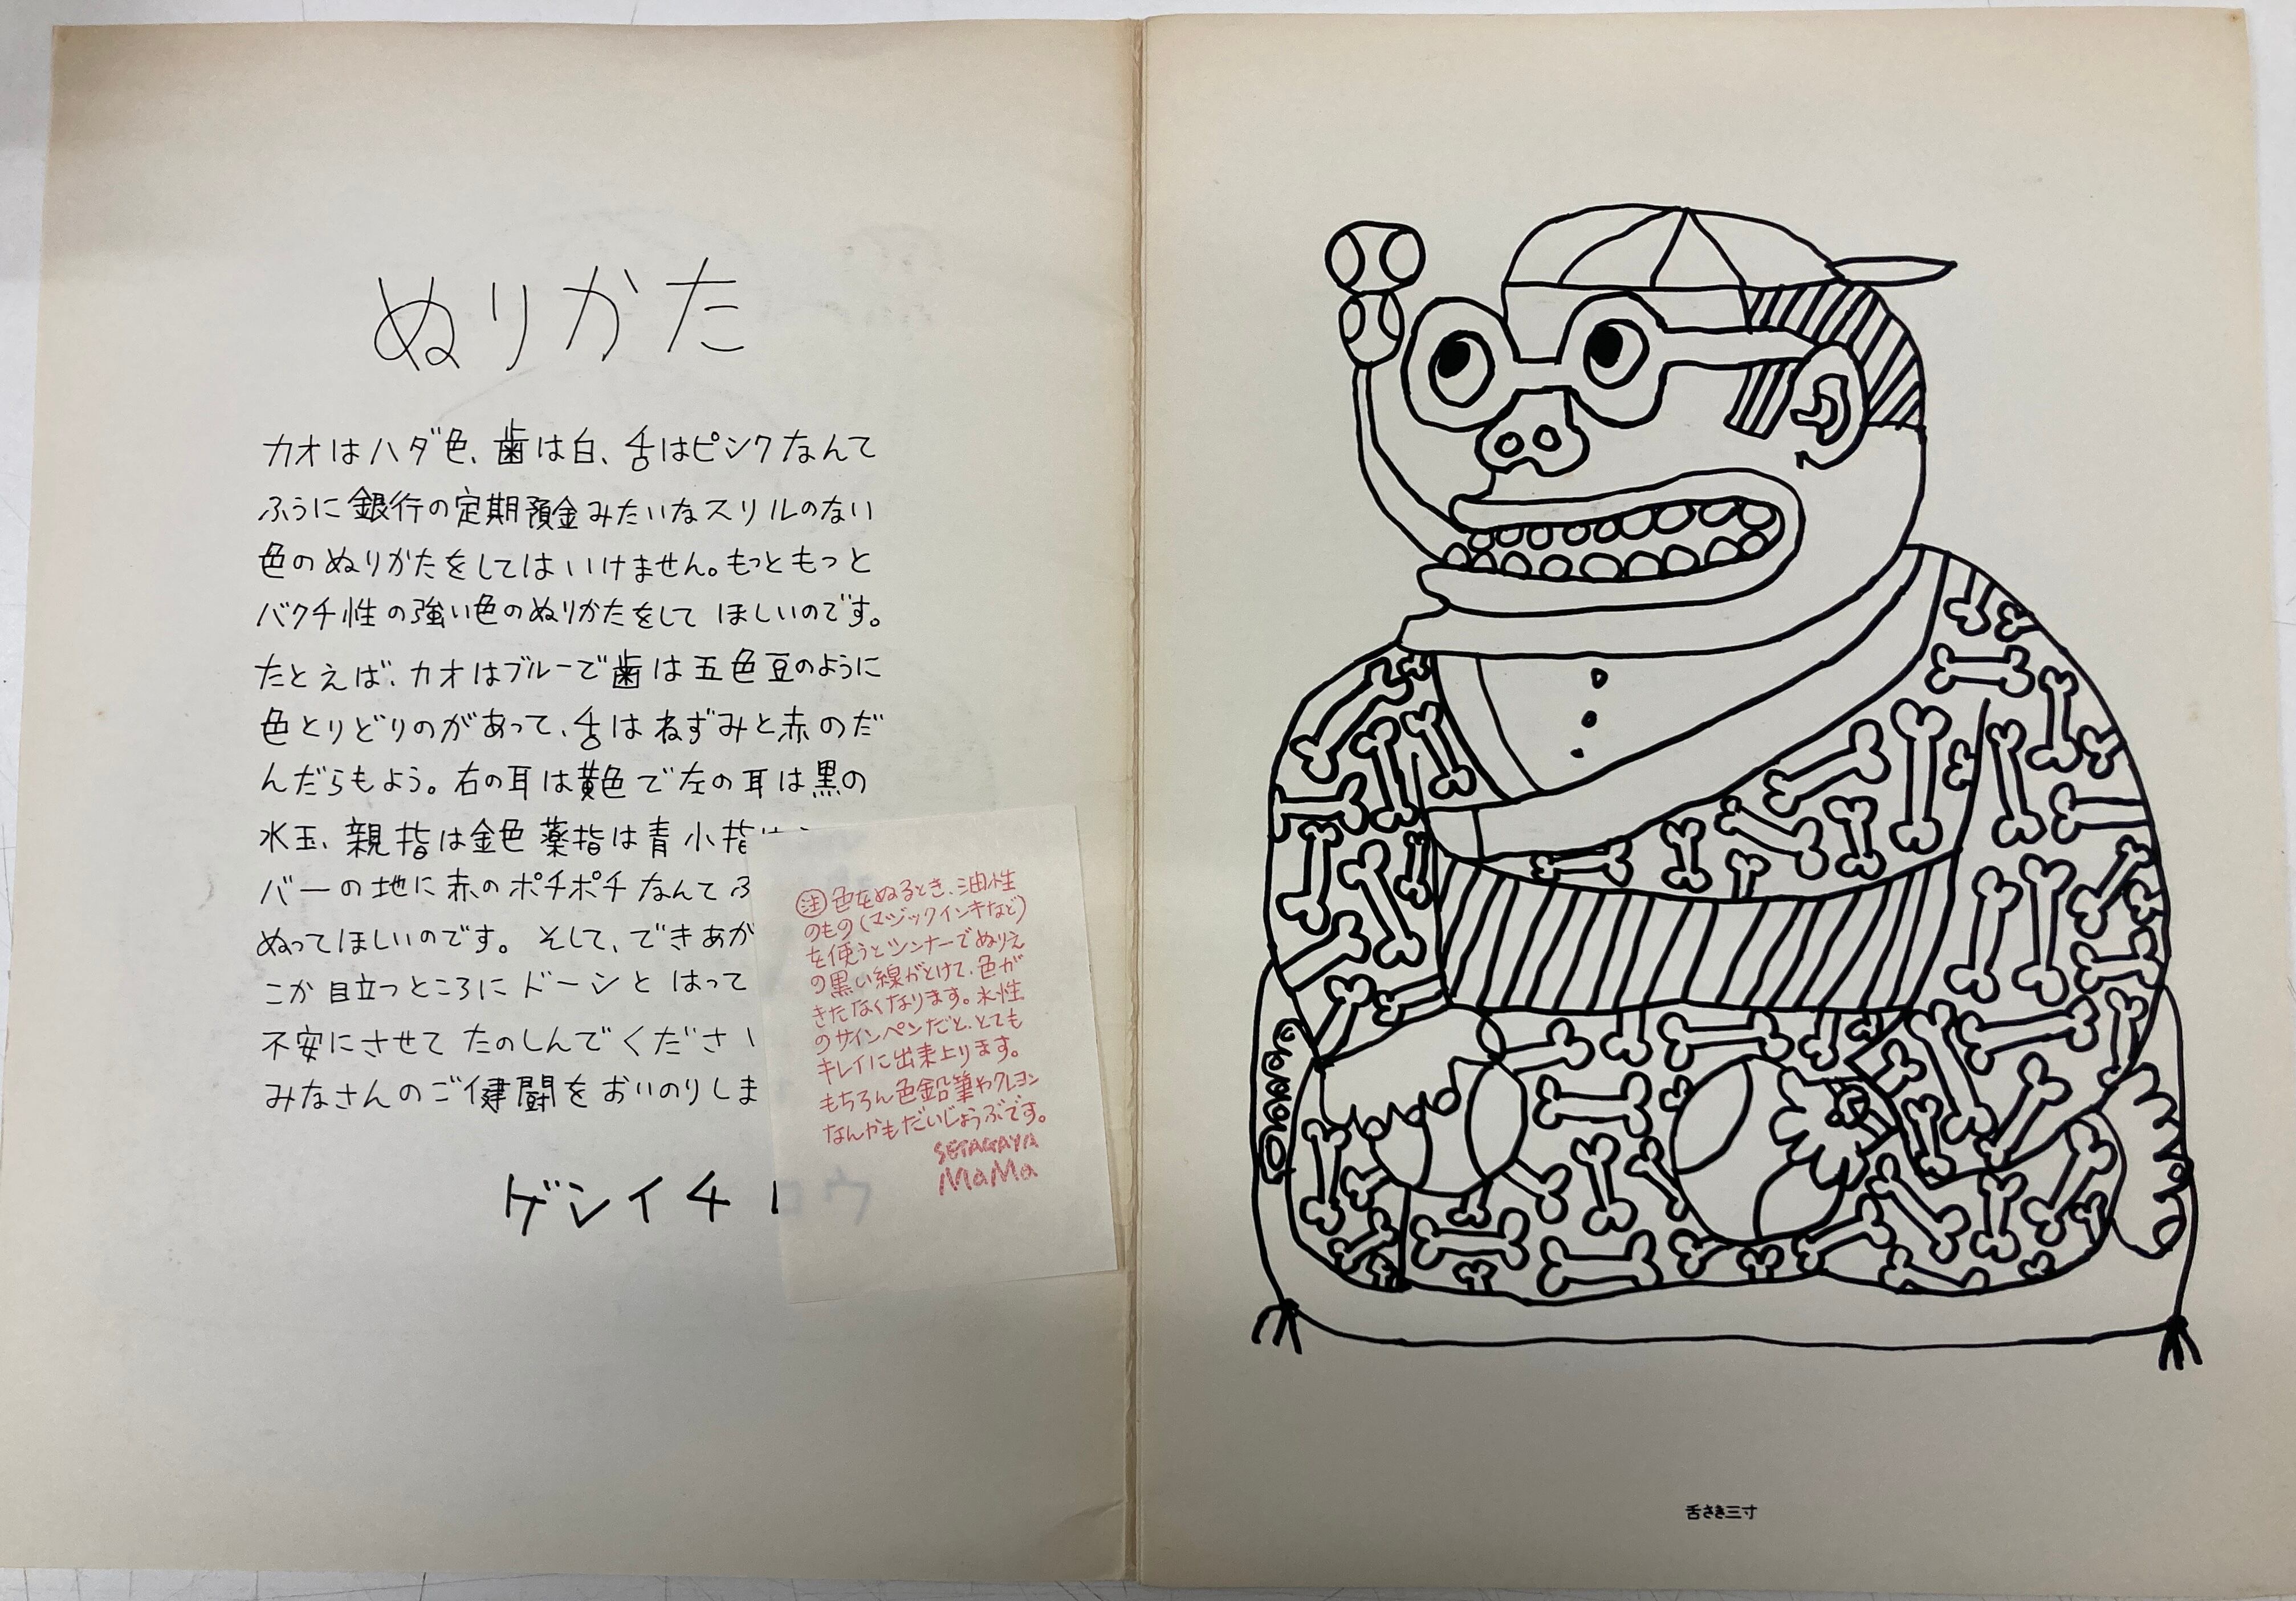 ぬりかた
カオはハダ色、歯は白、舌はピンクなんて
ふうに銀行の定期預金みたいなスリルのない
色のぬりかたをしてはいけません。もっともっと
バクチ性の強い色のぬりかたをして ほしいのです。
たとえば、カオはブルーで歯は五色豆のように
色とりどりのがあって、舌はねずみと赤のだ
んだらもよう。右の耳は黄色で左の耳は黒の
水玉、親指は金色 薬指は青 小指は
バーの地に赤のポチポチなんてふ
ぬってほしいのです。そして、できあが
こか目立つところにドーンと はって
不安にさせて たのしんでください
みなさんのご健闘をおいのりしま
ゲンイチロウ
注 色をぬるとき、油性
のもの(マジックインキなど)
を使うとシンナーでぬりえ
の黒い線がとけて、色が
きたなくなります。水性
のサインペンだと、とても
キレイに出来上ります。
もちろん色鉛筆やクレヨン
なんかもだいじょうぶです。
SETAGAYA
MaMa
舌さき三寸